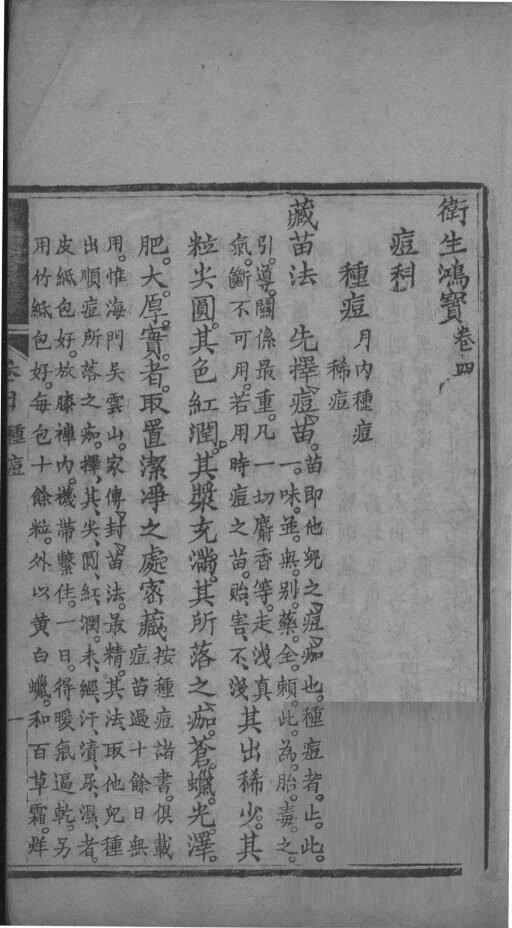 衛生鴻寶卷四
痘科
種痘 月內種痘
稀痘
藏苗法 先擇痘苗。苗即他兒之痘痂也。種痘者。止此。
一味。並無別藥。全賴此。為胎毒之
引導。關係最重。凡一切麝香等。走洩真
氣。斷不可用。若用時痘之苗。貽害不淺。其出稀少。其
粒尖圓。其色紅潤。其漿充滿。其所落之痂。蒼蠟光澤。
肥大厚實者。取置潔淨之處密藏。按種痘諸書。俱載
痘苗過十餘日無
用。惟海門吳雲山。家傳封苗法。最精。其法。取他兒種
出順痘所落之痂。擇其尖圓紅潤。未經汗漬尿濕者。
皮紙包好。放膝褌內。襪帶繫住。一日。得暖氣逼乾。另
用竹紙包好。每包十餘粒。外以黄白蠟。和百草霜。烊
種痘
一